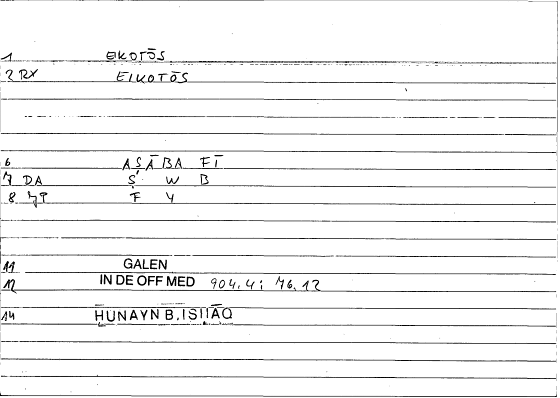 1 EIKOTŌS
2 RX EIKOTŌS
6 AṢĀBA FĪ
7 DA Ṣ W B
8 F Y
11 GALEN
12 IN DE OFF MED 904.4; 76.12
14 ḤUNAYN B. ISḤĀQ